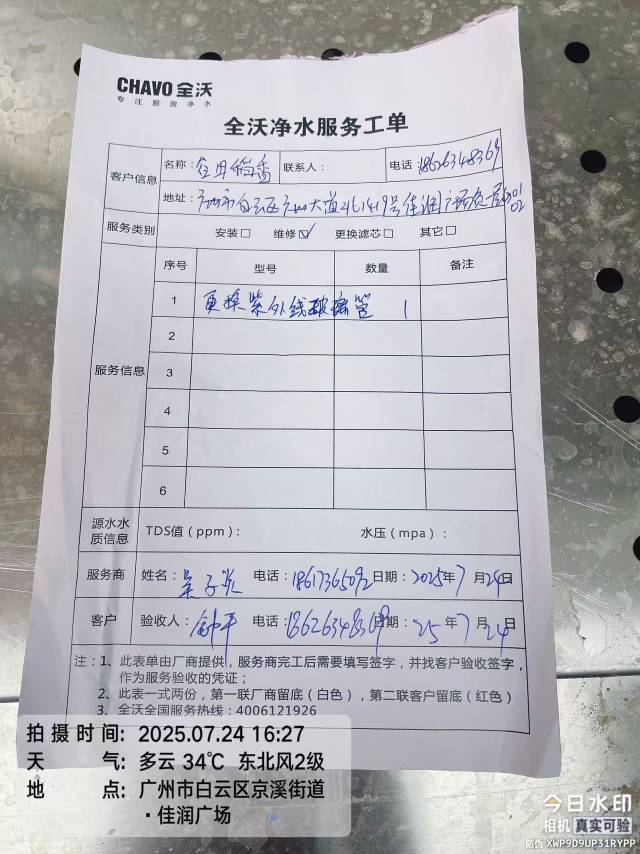 CHAVO 全沃
专注厨房净水
全沃净水服务工单
客户信息 名称: 联系人: 电话: 18626348369
地址: 广州市白云区广州大道 号佳润广场负一层
服务类别 安装□ 维修☑ 更换滤芯□ 其它□
服务信息 序号 型号 数量 备注
1 更换紫外线玻璃管 1
2
3
4
5
6
源水水质信息 TDS值（ppm）: 水压（mpa）:
服务商 姓名: 吴子炎 电话: 18617365092 日期: 2025年7月24日
客户 验收人: 电话: 18626348369 日期: 25年7月24日
注：1、此表单由厂商提供，服务商完工后需要填写签字，并找客户验收签字，
作为服务验收的凭证；
2、此表一式两份，第一联厂商留底（白色），第二联客户留底（红色）
3、全沃全国服务热线：4006121926
拍摄时间: 2025.07.24 16:27
天气: 多云 34℃ 东北风2级
地点: 广州市白云区京溪街道
·佳润广场
今日水印
相机 真实可验
防伪 XWP9D9UP31RYPP